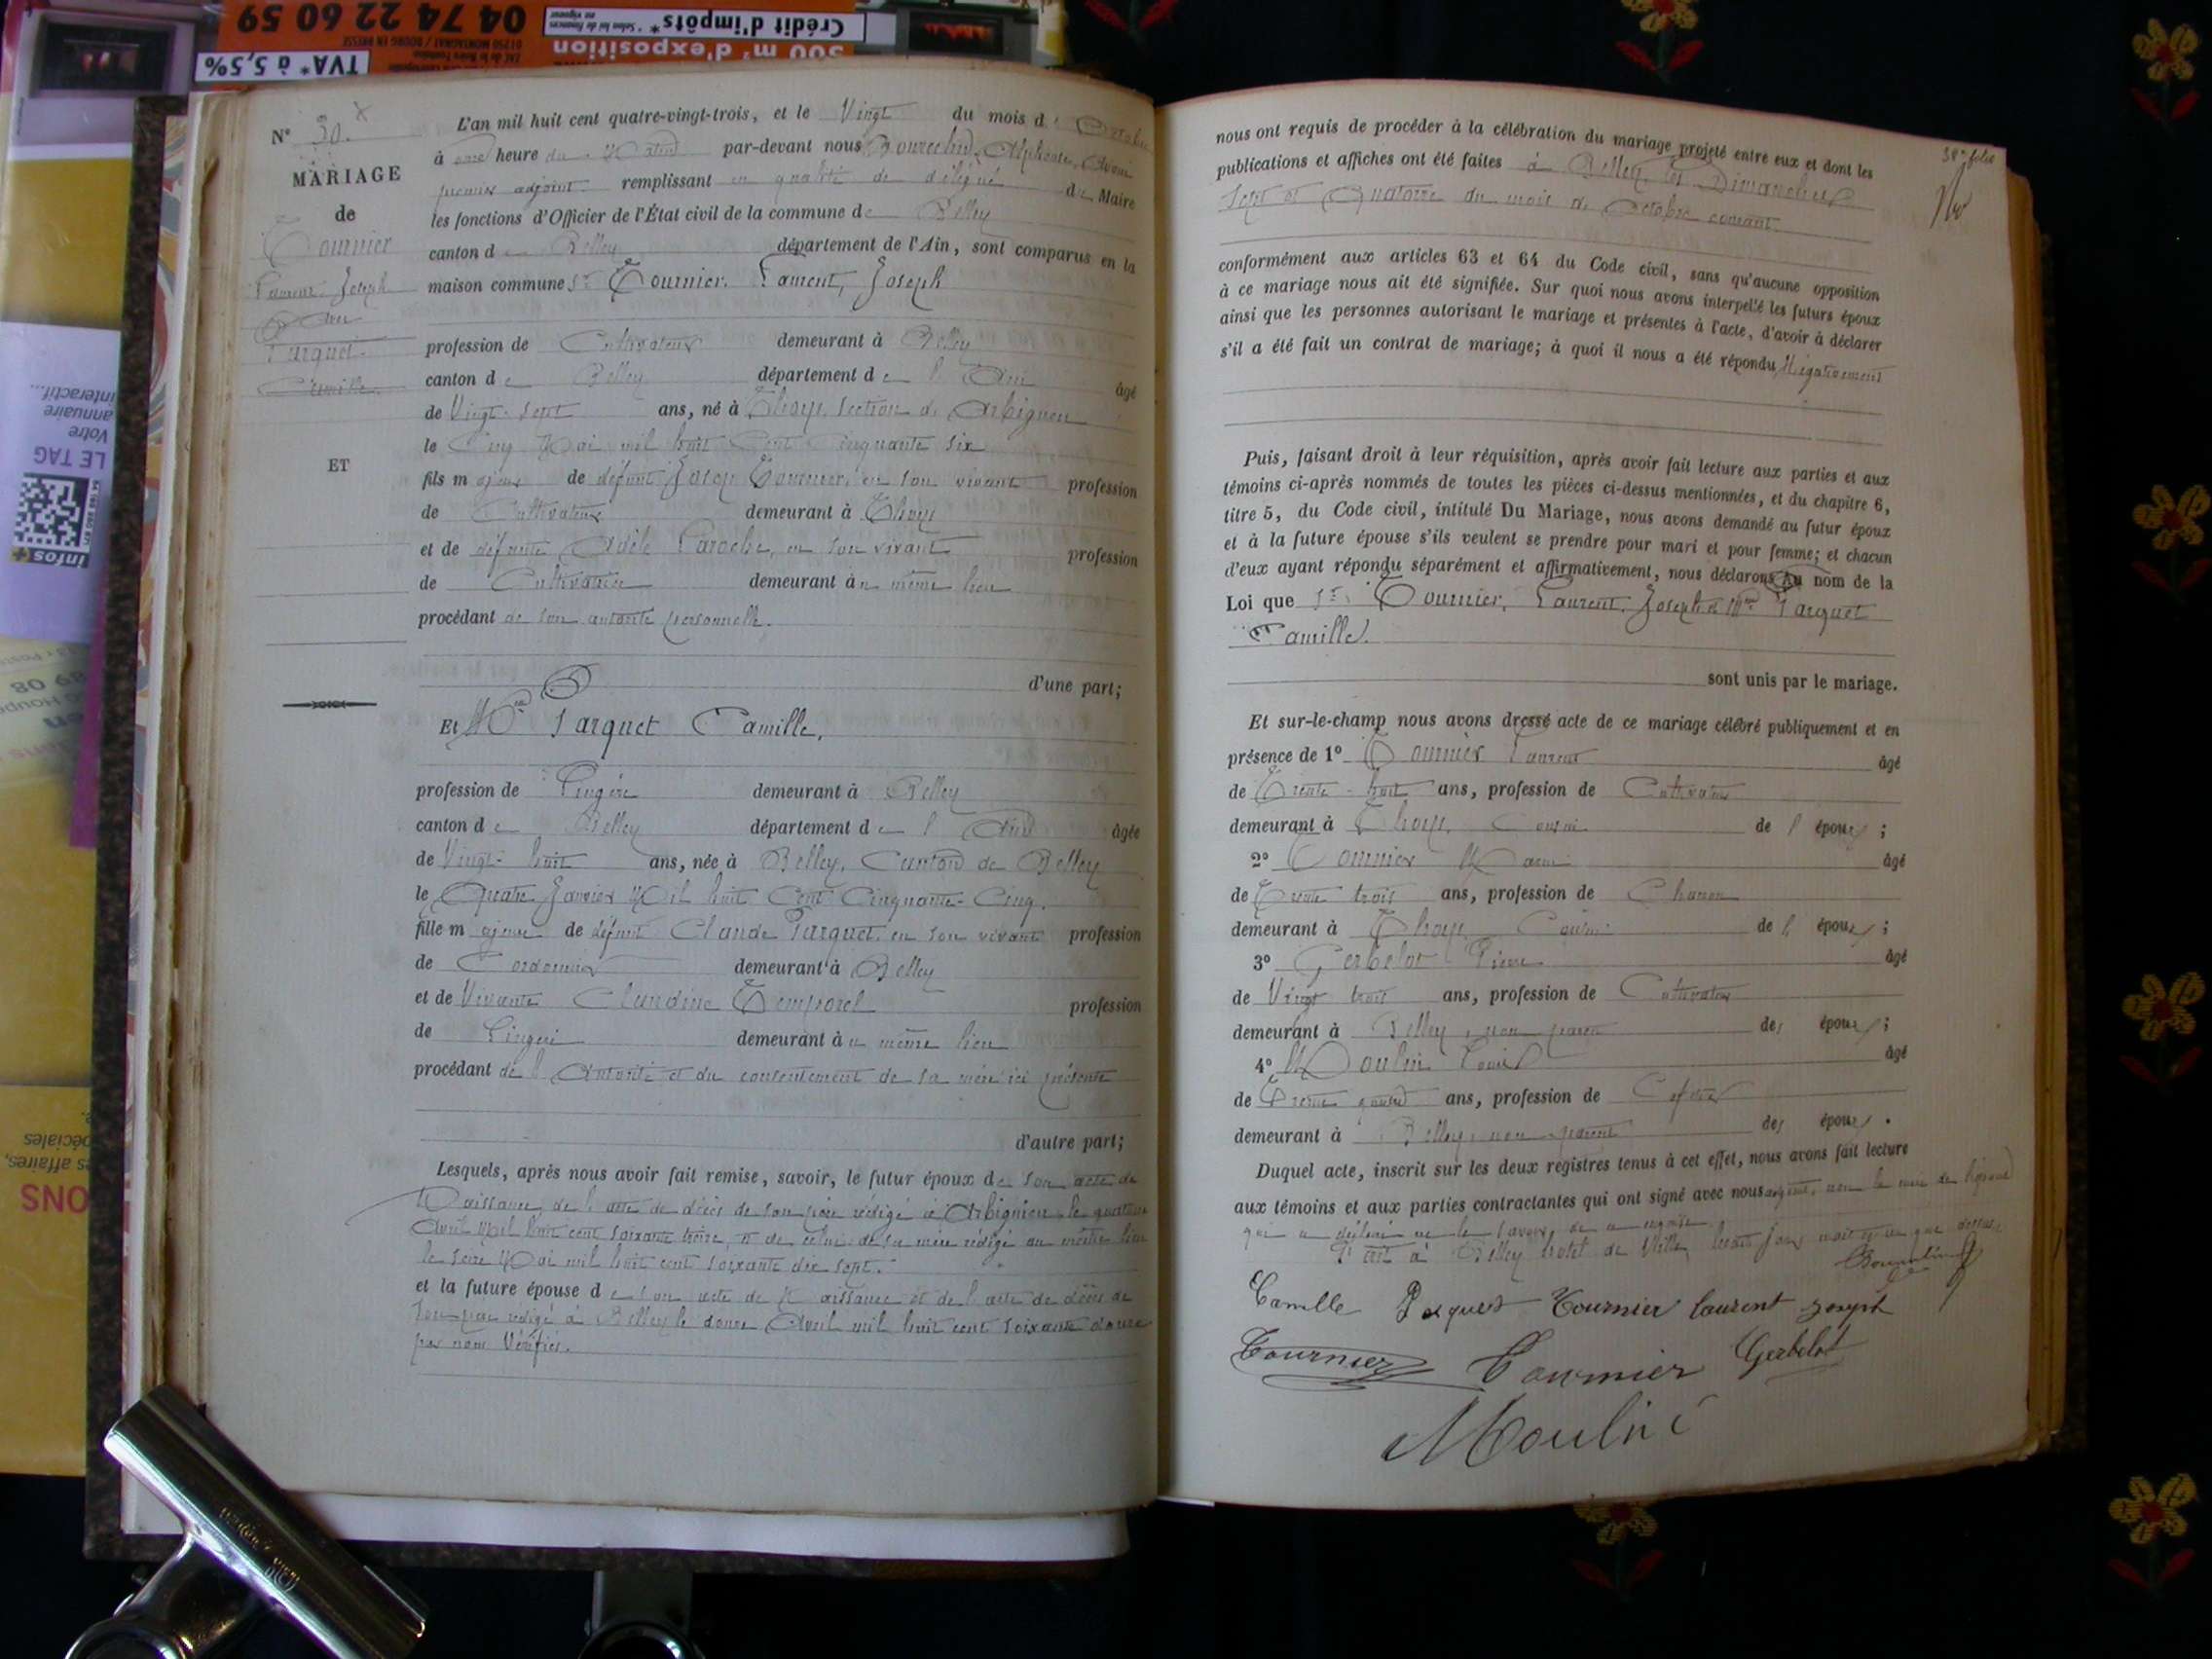 04 74 22 60 59
TVA* à 5,5%
Crédit d'impôts*
500 m² d'exposition
LE TAG
Votre
annuaire
interactif...
infos+
N° 30.
MARIAGE
de
Tournier
Laurent Joseph
Parquet
Camille
ET
L'an mil huit cent quatre-vingt-trois, et le Vingt du mois d' Octobre
à onze heure du Matin par-devant nous Alphonse
premier adjoint remplissant en qualité de délégué du Maire
les fonctions d'Officier de l'État civil de la commune de Belley
canton de Belley département de l'Ain, sont comparus en la
maison commune Sr Tournier. Laurent, Joseph
profession de Cultivateur demeurant à Belley
canton de Belley département de l'Ain âgé
de Vingt-sept ans, né à Thoys section d'Arbignieu
le Cinq Mai mil huit Cent Cinquante six
fils majeur de défunt Joseph Tournier, en son vivant profession
de Cultivateur demeurant à Thoys
et de défunte Adèle Laroche, en son vivant profession
de Cultivatrice demeurant au même lieu
procédant de son autorité personnelle.
d'une part;
Et Mlle Parquet Camille,
profession de Lingère demeurant à Belley
canton de Belley département de l'Ain âgée
de Vingt-huit ans, née à Belley, Canton de Belley
le Quatre Janvier Mil huit Cent Cinquante-Cinq.
fille majeure de défunt Claude Parquet, en son vivant profession
de Cordonnier demeurant à Belley
et de Vivante Claudine Temporel profession
de Lingère demeurant au même lieu
procédant de l'Autorité et du consentement de sa mère ici présente
d'autre part;
Lesquels, après nous avoir fait remise, savoir, le futur époux de son acte de
Naissance, de l'acte de décès de son père rédigé à Arbignieu le quatorze
Avril Mil huit cent soixante treize, et de celui de sa mère rédigé au même lieu
le seize Mai mil huit cent soixante dix sept.
et la future épouse de son acte de Naissance et de l'acte de décès de
son père rédigé à Belley le douze Avril mil huit cent soixante douze
par nous Vérifiés.
38e folio
nous ont requis de procéder à la célébration du mariage projeté entre eux et dont les
publications et affiches ont été faites à Belley, les Dimanches
Sept et Quatorze du mois d'Octobre courant.
conformément aux articles 63 et 64 du Code civil, sans qu'aucune opposition
à ce mariage nous ait été signifiée. Sur quoi nous avons interpellé les futurs époux
ainsi que les personnes autorisant le mariage et présentes à l'acte, d'avoir à déclarer
s'il a été fait un contrat de mariage; à quoi il nous a été répondu Négativement
Puis, faisant droit à leur réquisition, après avoir fait lecture aux parties et aux
témoins ci-après nommés de toutes les pièces ci-dessus mentionnées, et du chapitre 6,
titre 5, du Code civil, intitulé Du Mariage, nous avons demandé au futur époux
et à la future épouse s'ils veulent se prendre pour mari et pour femme; et chacun
d'eux ayant répondu séparément et affirmativement, nous déclarons Au nom de la
Loi que Sr. Tournier, Laurent, Joseph et Mlle Parquet
Camille.
sont unis par le mariage.
Et sur-le-champ nous avons dressé acte de ce mariage célébré publiquement et en
présence de 1° Tournier Laurent âgé
de Trente-huit ans, profession de Cultivateur
demeurant à Thoys, Cousin de l'époux;
2° Tournier âgé
de Trente trois ans, profession de Charron
demeurant à Thoys Cousin de l'époux;
3° Gerbelot Pierre âgé
de Vingt trois ans, profession de Cultivateur
demeurant à Belley, non parent des époux;
4° Moulin Louis âgé
de Trente quatre ans, profession de Cafetier
demeurant à Belley, non parent des époux.
Duquel acte, inscrit sur les deux registres tenus à cet effet, nous avons fait lecture
aux témoins et aux parties contractantes qui ont signé avec nous non la mère de l'épouse
qui a déclaré ne le savoir, de ce enquise.
Fait à Belley hôtel de Ville, les jour, mois et an que dessus.
Camille Parquet Tournier laurent joseph
Tournier Tournier Gerbelot
Moulin